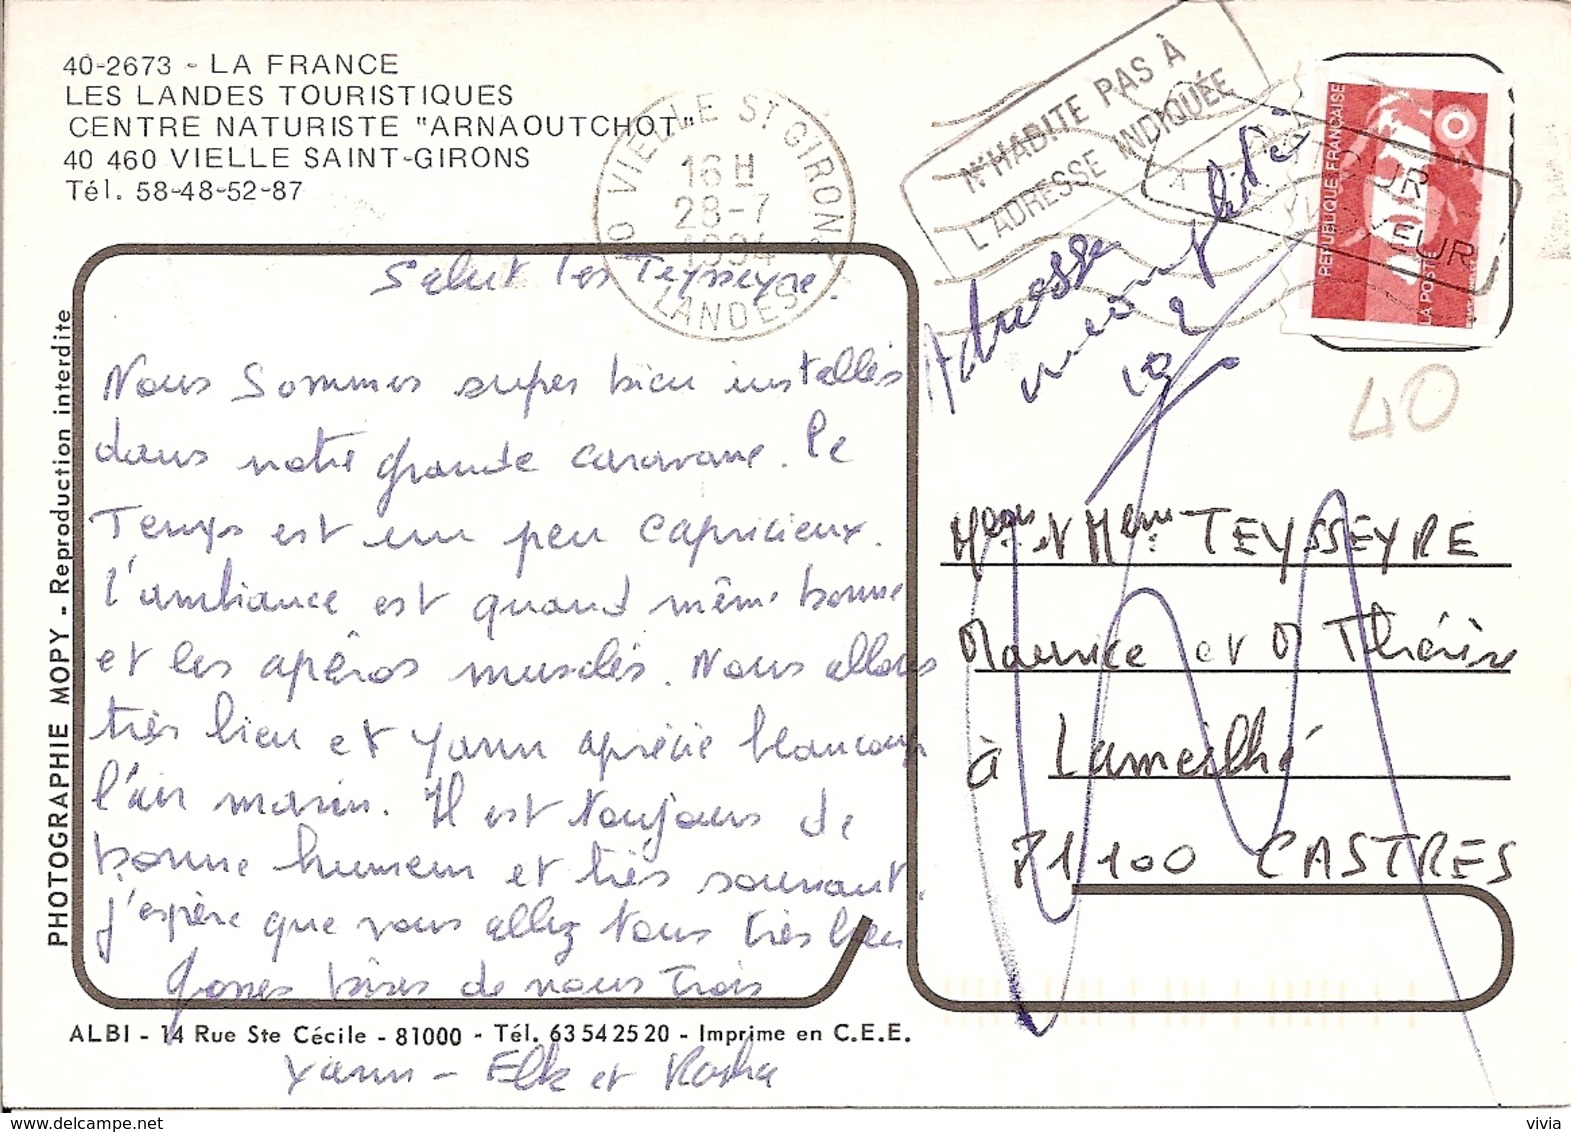 40-2673 - LA FRANCE
LES LANDES TOURISTIQUES
CENTRE NATURISTE "ARNAOUTCHOT"
40 460 VIELLE SAINT-GIRONS
Tél. 58-48-52-87
40 VIELLE ST GIRONS
16 H
28-7
1994
LANDES
N'HABITE PAS À
L'ADRESSE INDIQUÉE
REPUBLIQUE FRANÇAISE
LA POSTE
Adresse
vieinnt
40
Salut les Teysseyre.
Nous Sommes super bien installés
dans notre grande caravane. Le
Temps est un peu capricieux.
L'ambiance est quand même bonne
et les apéros musclés. Nous allons
très bien et Yann aprécie beaucoup
l'air marin. Il est toujours de
bonne humeur et très souriant.
J'espère que vous allez tous très bien
Grosses bises de nous Trois
Yann - Elk et
Meur et Mme TEYSSEYRE
Maurice et M Thérèse
à Lameilhé
81100 CASTRES
PHOTOGRAPHIE MOPY - Reproduction interdite
ALBI - 14 Rue Ste Cécile - 81000 - Tél. 63 54 25 20 - Imprime en C.E.E.
www.delcampe.net
vivia